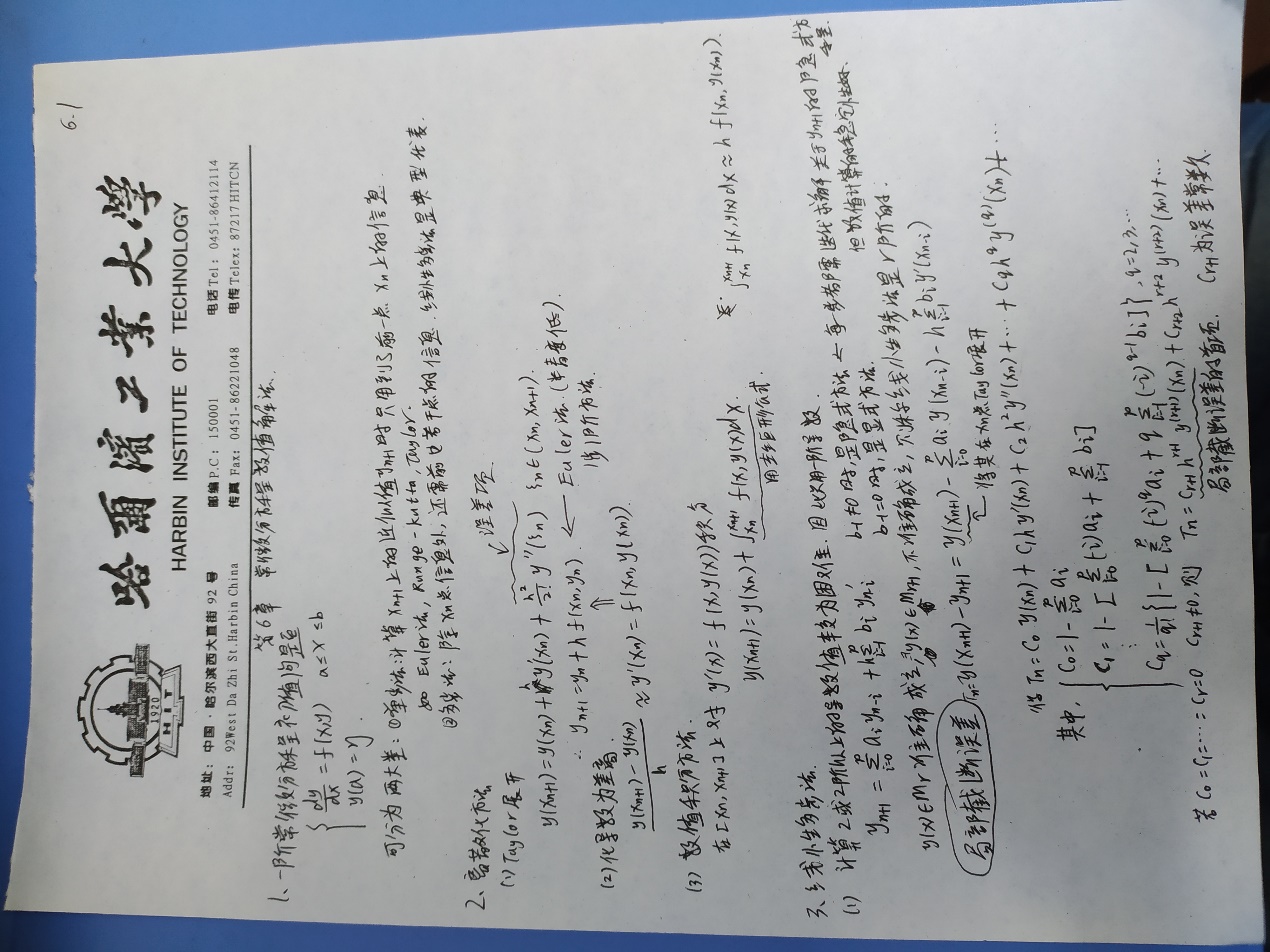 6.1
哈爾濱工業大學
HARBIN INSTITUTE OF TECHNOLOGY
1920
HIT
地址: 中国·哈尔滨西大直街 92 号 邮编 P.C: 150001 电话 Tel: 0451-86412114
Addr: 92West Da Zhi St.Harbin China 传真 Fax: 0451-86221048 电传 Telex: 87217 HITCN
第6章 常微分方程数值解法.
1、一阶常微分方程初值问题
{ dy/dx = f(x,y) a≤x≤b
y(a) = y
可分为两大类: ①单步法: 计算 xn+1 上的近似值 yn+1 时只用到了前一点 xn 上的信息.
如 Euler法, Runge-kutta, Taylor.
②多步法: 除 xn 点信息外, 还需前边若干点的信息. 线性多步法是典型代表.
2、离散化方法
(1) Taylor 展开 误差项
y(xn+1) = y(xn) + hy'(xn) + h²/2 y''(ξn) ξn∈(xn, xn+1).
∴ yn+1 = yn + h f(xn, yn). ← Euler法. (精度低).
(2) 化导数为差商. 1阶方法.
(y(xn+1) - y(xn))/h ≈ y'(xn) = f(xn, y(xn)).
(3) 数值积分方法.
在[xn, xn+1]上对 y'(x) = f(x, y(x)) 积分
y(xn+1) = y(xn) + ∫xn^xn+1 f(x, y(x))dx. ∫xn^xn+1 f(x, y(x))dx ≈ h f(xn, y(xn)).
用左矩形公式.
3、线性多步法.
(1) 计算2或2阶以上的导数值较为困难. 因此只用一阶导数.
yn+1 = Σ(i=0..p) ai yn-i + h Σ(i=-1..p) bi y'n-i b-1≠0时, 是隐式方法 ← 每步都需迭代求解关于yn+1的隐式方程.
但数值计算的稳定性好.
b-1=0时, 是显式方法.
y(x)∈Mr 准确成立, y(x)∈Mr+1, 不准确成立, 则称线性多步法是 r 阶的.
局部截断误差 Tn = y(xn+1) - yn+1 = y(xn+1) - Σ(i=0..p) ai y(xn-i) - h Σ(i=-1..p) bi y'(xn-i)
将其在xn点Taylor展开
得 Tn = C0 y(xn) + C1 h y'(xn) + C2 h² y''(xn) + ⋯ + Cq h^q y^(q)(xn) + ⋯
其中, { C0 = 1 - Σ(i=0..p) ai
C1 = 1 - [ Σ(i=0..p) (-i) ai + Σ(i=-1..p) bi ]
⋮
Cq = 1/q! { 1 - [ Σ(i=0..p) (-i)^q ai + q Σ(i=-1..p) (-i)^(q-1) bi ] }, q=2,3,⋯
若 C0 = C1 = ⋯ = Cr = 0 Cr+1≠0, 则 Tn = Cr+1 h^(r+1) y^(r+1)(xn) + Cr+2 h^(r+2) y^(r+2)(xn) + ⋯
局部截断误差的首项. Cr+1为误差常数.